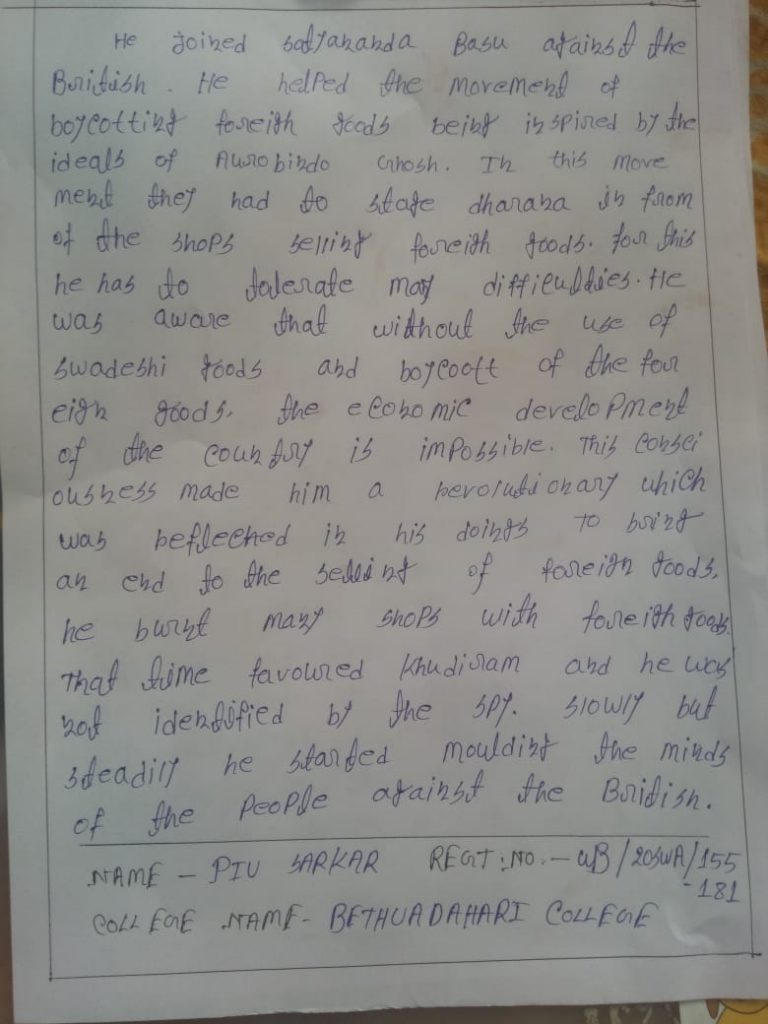 He joined satyananda Basu against the
British. He helped the movement of
boycotting foreign goods being inspired by the
ideals of Aurobindo Ghosh. In this move
ment they had to stage dharana in from
of the shops selling foreign goods. for this
he has to tolerate may difficulties. He
was aware that without the use of
swadeshi goods and boycott of the for
eign goods. the economic development
of the country is impossible. This consci
ousness made him a revolutionary which
was reflected in his doings To bring
an end to the selling of foreign goods.
he burnt many shops with foreign goods.
That time favoured Khudiram and he was
not identified by the spy. slowly but
steadily he started moulding the minds
of the people against the British.
NAME - PIU SARKAR REGT: NO. - WB/20SWA/155
-181
COLLEGE NAME - BETHUADAHARI COLLEGE